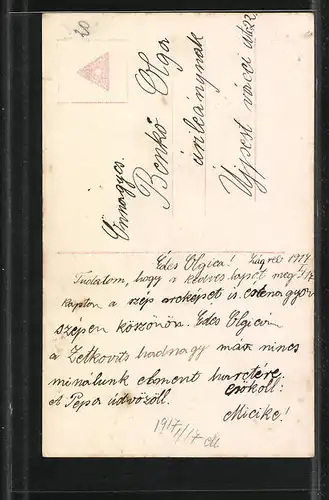 20
Önnagys.
Benkő Olga
úrileánynak
Ujpest váczi utca
Édes Olgica! Zágreb 1917
Tudatom, hogy a kedves lapját meg I/17
kaptam a szép arcképet is
szépen köszönöm. Édes Olgicám
a Zetkovits hadnagy már nincs
minálunk elment harctérre.
csókoll:
A Pepa üdvözöll.
Micike!
1917 I/17